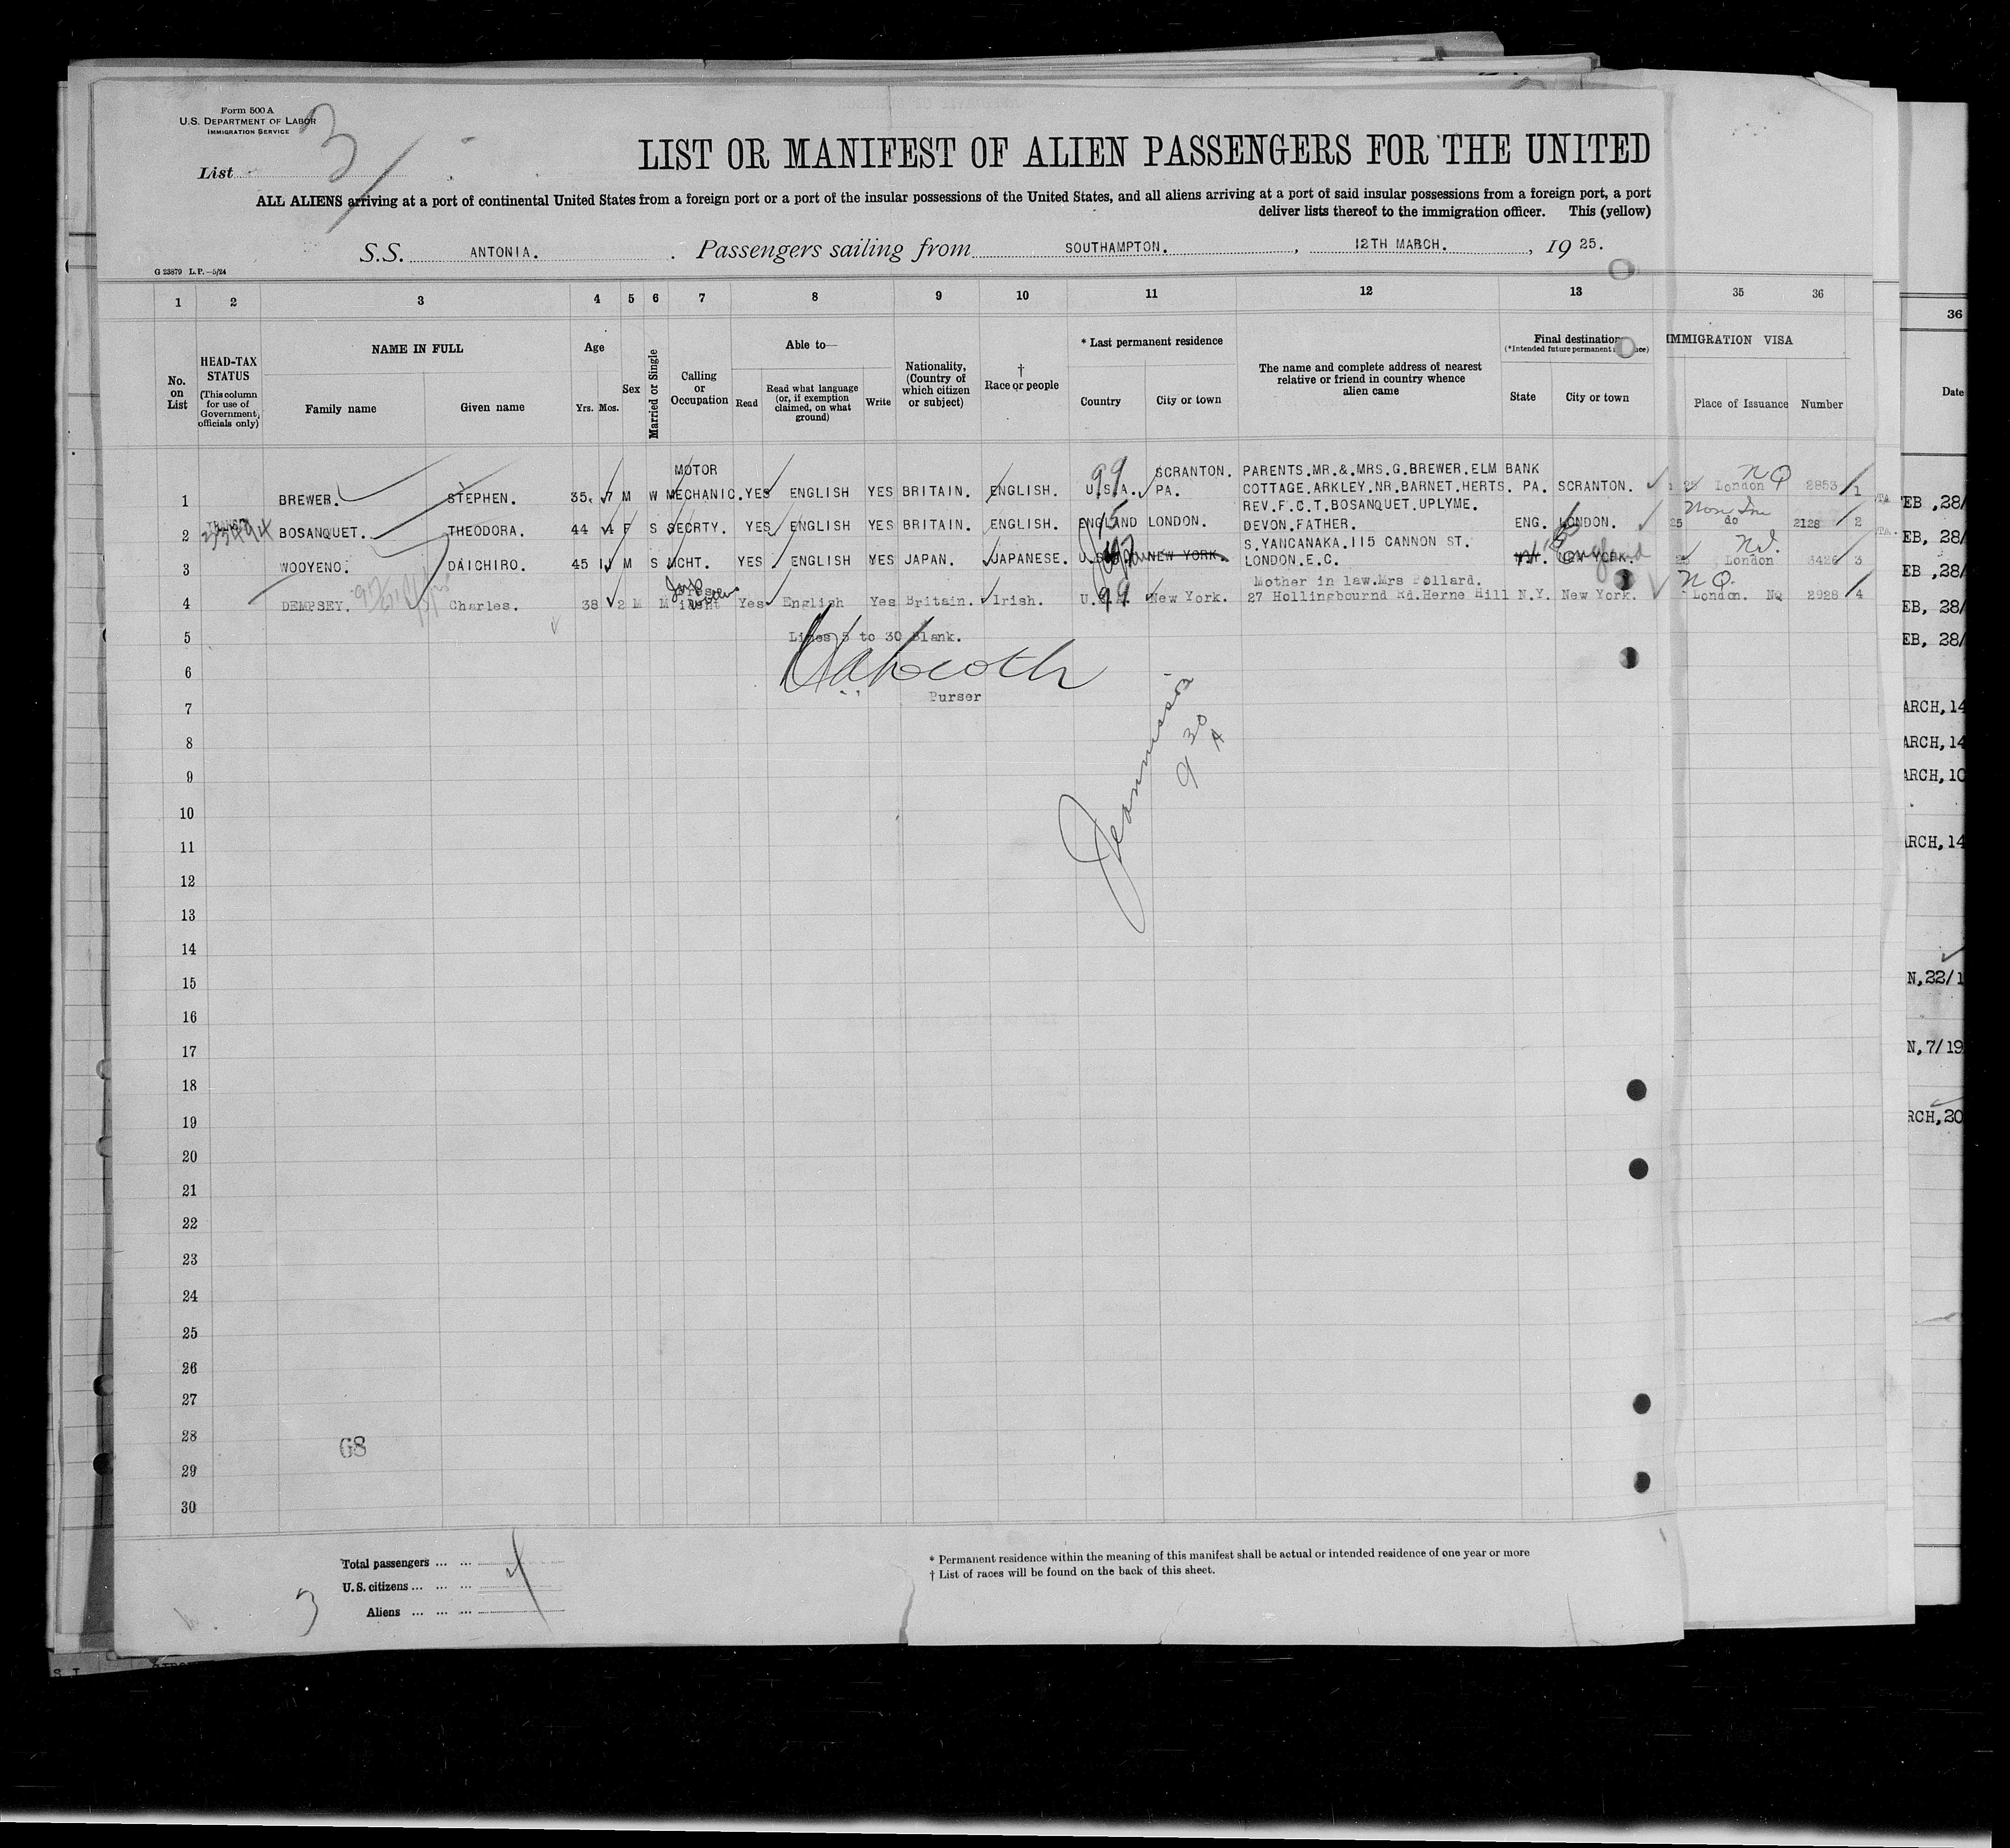 Form 500 A
U.S. DEPARTMENT OF LABOR
IMMIGRATION SERVICE
List 3
LIST OR MANIFEST OF ALIEN PASSENGERS FOR THE UNITED
ALL ALIENS arriving at a port of continental United States from a foreign port or a port of the insular possessions of the United States, and all aliens arriving at a port of said insular possessions from a foreign port, a port
deliver lists thereof to the immigration officer. This (yellow)
S.S. ANTONIA. Passengers sailing from SOUTHAMPTON. , 12TH MARCH. , 19 25.
G 23879 L.P.—5/24
1 2 3 4 5 6 7 8 9 10 11 12 13 35 36
36
No. on List
HEAD-TAX STATUS (This column for use of Government officials only)
NAME IN FULL
Family name
Given name
Age
Yrs. Mos.
Sex
Married or Single
Calling or Occupation
Able to—
Read
Read what language (or, if exemption claimed, on what ground)
Write
Nationality, (Country of which citizen or subject)
† Race or people
* Last permanent residence
Country
City or town
The name and complete address of nearest relative or friend in country whence alien came
Final destination
(*Intended future permanent
State
City or town
IMMIGRATION VISA
Place of Issuance
Number
Date
1 BREWER. STEPHEN. 35. 7 M W MOTOR MECHANIC. YES ENGLISH YES BRITAIN. ENGLISH. U.S.A. 99 SCRANTON. PA. PARENTS.MR.&.MRS.G.BREWER.ELM BANK COTTAGE.ARKLEY.NR.BARNET.HERTS. PA. SCRANTON. 25 London NQ 2853 1
2 BOSANQUET. THEODORA. 44 4 F S SECRTY. YES ENGLISH YES BRITAIN. ENGLISH. ENGLAND LONDON. REV.F.C.T.BOSANQUET.UPLYME. DEVON.FATHER. ENG. LONDON. 25 do 2128 2
3 WOOYENO. DAICHIRO. 45 11 M S MCHT. YES ENGLISH YES JAPAN. JAPANESE. NEW YORK. S.YANCANAKA.115 CANNON ST. LONDON.E.C. NEW YORK. England London 3426 3
4 DEMPSEY. Charles. 38 2 M M Yes English Yes Britain. Irish. 99 New York. Mother in law.Mrs Pollard. 27 Hollingbournd Rd.Herne Hill N.Y. New York. NQ. London. NQ 2928 4
5 Lines 5 to 30 Blank.
6
Purser
7
8
9
9 30 A
10
11
12
13
14
15
16
17
18
19
20
21
22
23
24
25
26
27
28
68
29
30
EB ,28/
EB, 28/
EB ,28/
EB, 28/
EB, 28/
ARCH,14
ARCH,14
ARCH,10
ARCH,14
N,22/1
N,7/19
RCH,20
Total passengers ... ... 4
U.S. citizens ... ... ...
Aliens ... ... ...
3
* Permanent residence within the meaning of this manifest shall be actual or intended residence of one year or more
† List of races will be found on the back of this sheet.